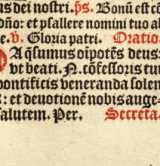 dei nostri. ps. Bonū est cō
dño: et psallere nomini tuo al
me. v. Gloria patri. Oratio.
Da qsumus oīpotēs deus:
vt beati. N. cōfessoris tui
pontificis veneranda solem
: et deuotionē nobis auge
salutem. Per. Secreta.